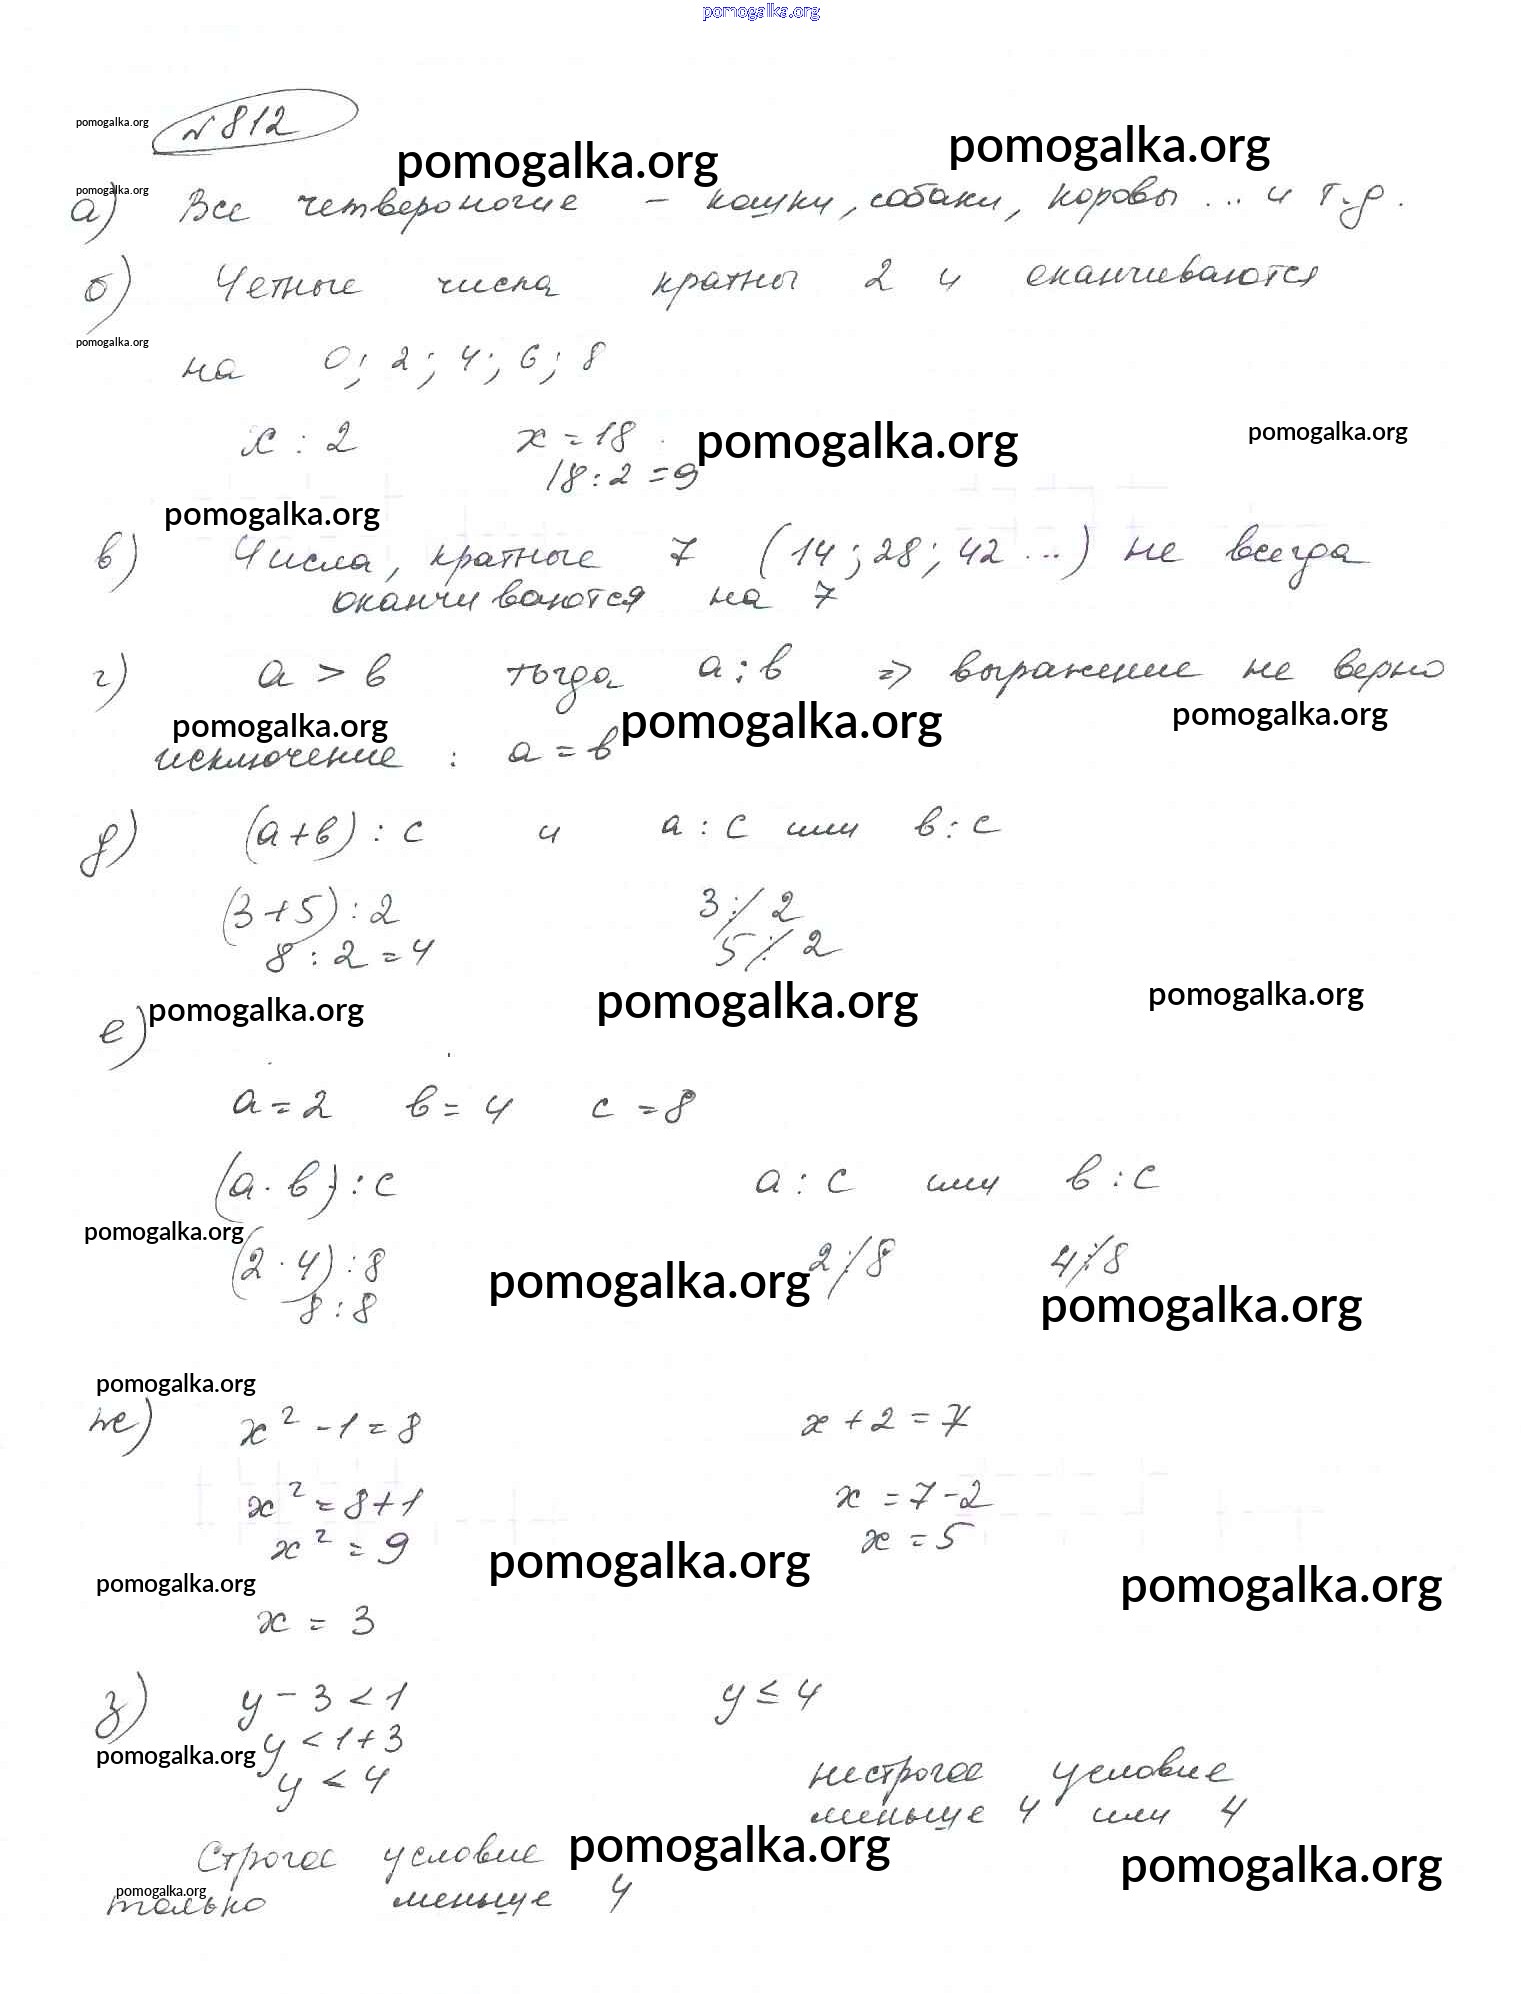 pomogalka.org
№ 812
pomogalka.org
pomogalka.org
pomogalka.org
pomogalka.org
а) Все четвероногие – кошки, собаки, коровы ... и т.д.
б) Четные числа кратны 2 и оканчиваются
pomogalka.org
на 0; 2; 4; 6; 8
x : 2 x = 18
pomogalka.org
pomogalka.org
18 : 2 = 9
pomogalka.org
в) Числа, кратные 7 (14; 28; 42 ...) не всегда
оканчиваются на 7
г) a > b тогда a : b => выражение не верно
pomogalka.org
pomogalka.org
pomogalka.org
исключение : a = b
д) (a+b) : c и a : c или b : c
(3+5) : 2 3 :/ 2
8 : 2 = 4 5 :/ 2
pomogalka.org
pomogalka.org
pomogalka.org
е)
a = 2 b = 4 c = 8
(a · b) : c a : c или b : c
pomogalka.org
(2 · 4) : 8 2 :/ 8 4 :/ 8
pomogalka.org
pomogalka.org
8 : 8
pomogalka.org
ж) x² - 1 = 8 x + 2 = 7
x² = 8+1 x = 7-2
x² = 9 x = 5
pomogalka.org
pomogalka.org
pomogalka.org
x = 3
з) y - 3 < 1 y ≤ 4
y < 1+3
pomogalka.org
y < 4 нестрогое условие
меньше 4 или 4
Строгое условие
pomogalka.org
pomogalka.org
pomogalka.org
только меньше 4